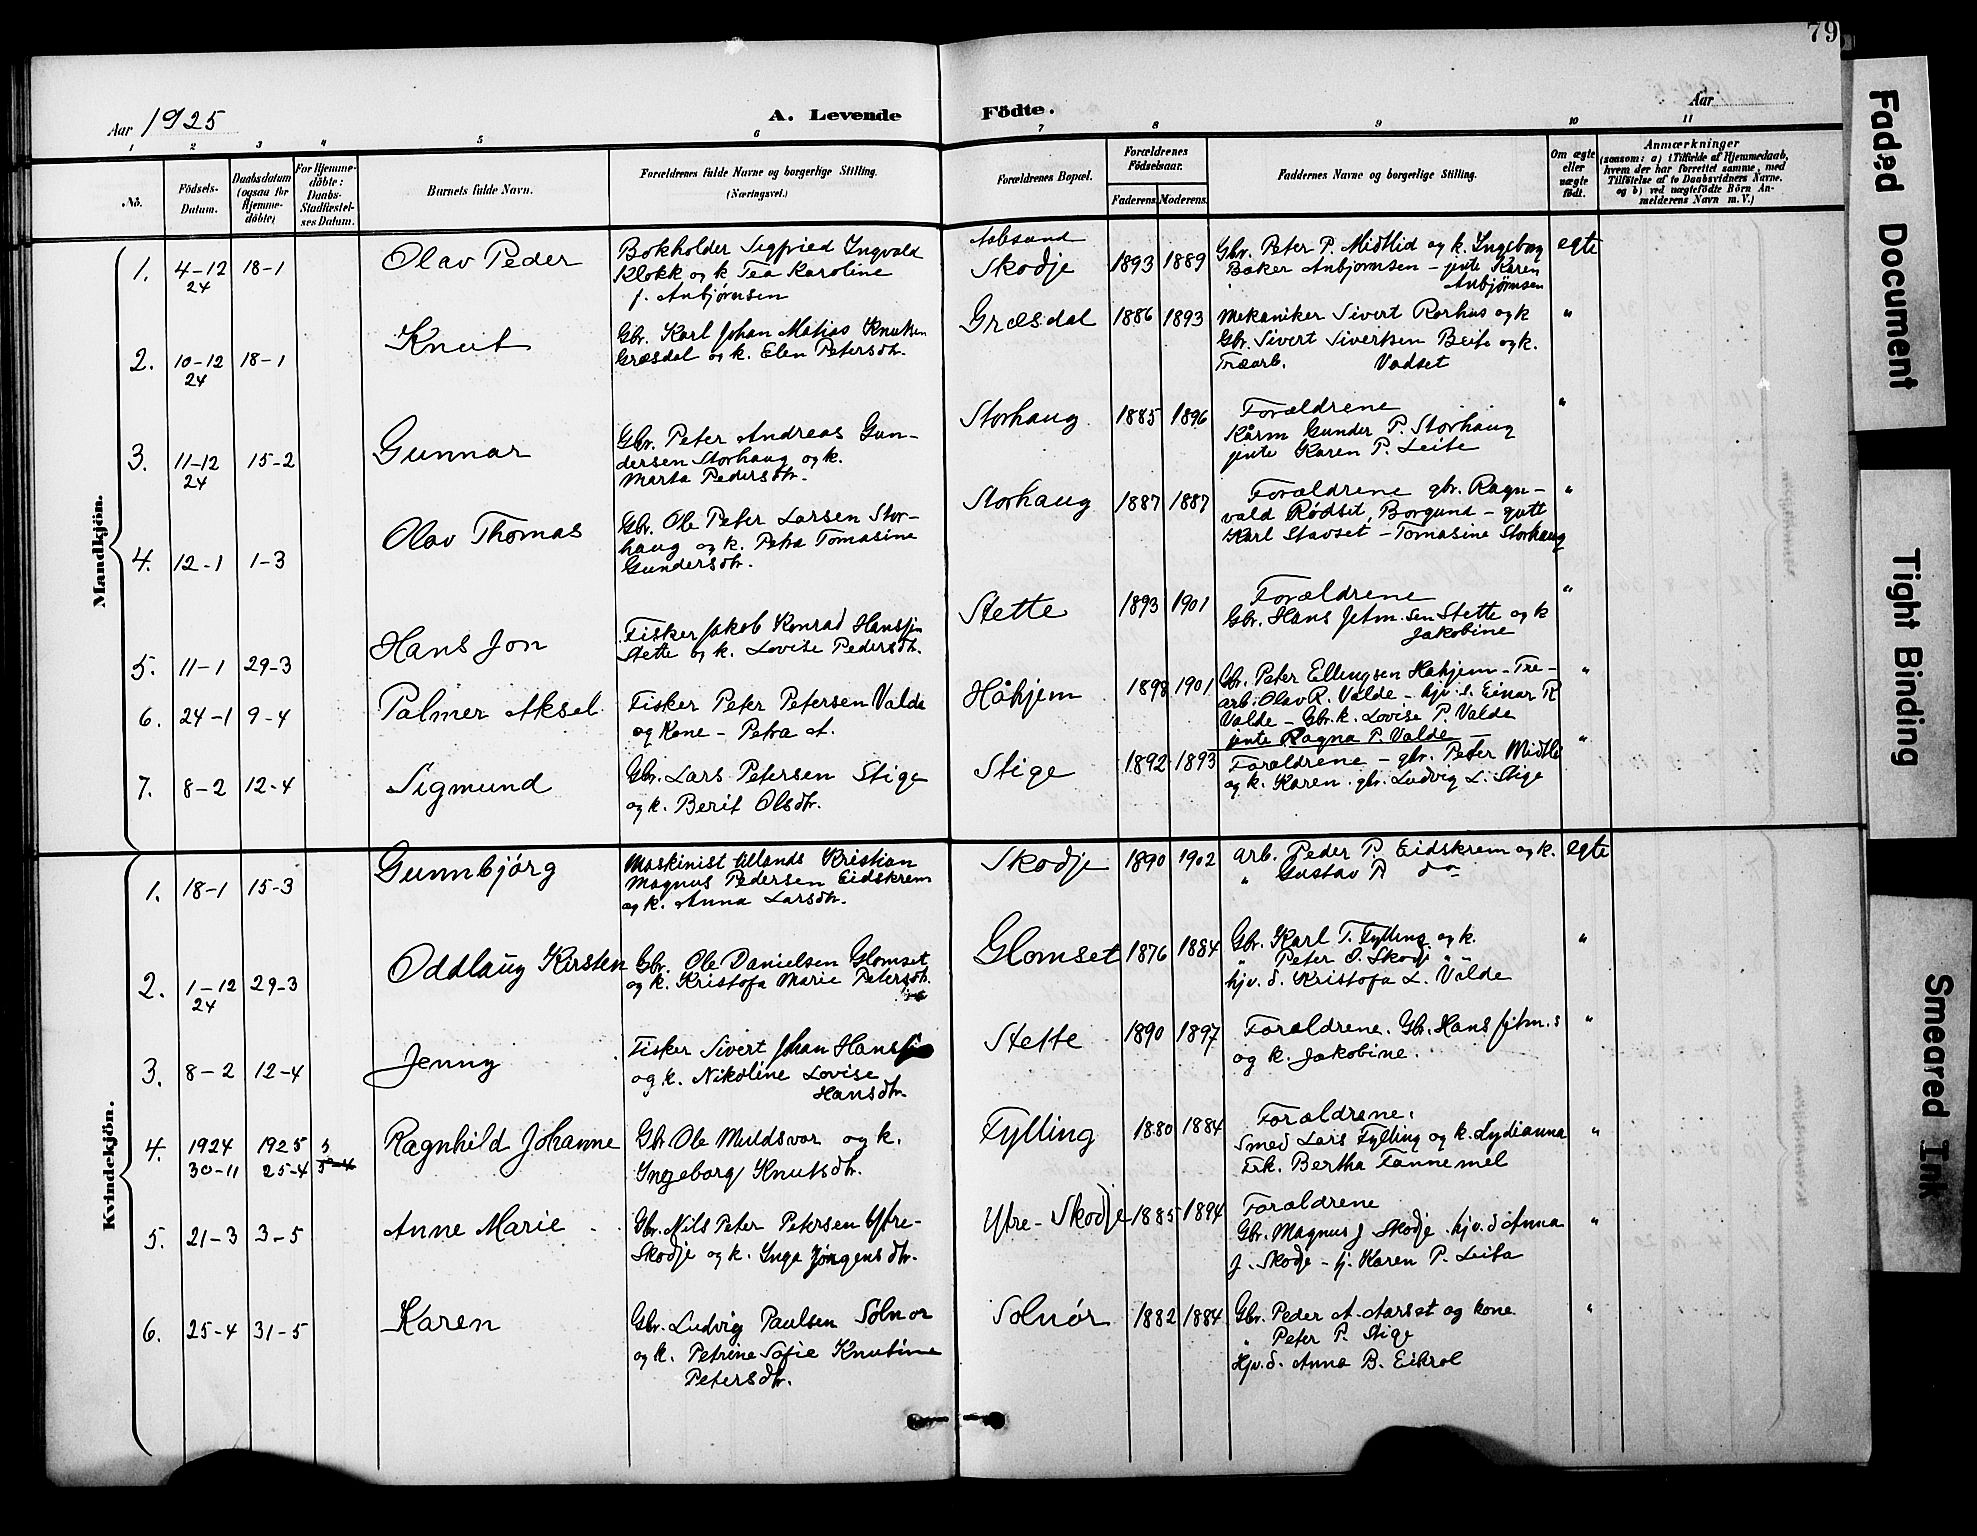 79
Aar 1925
A. Levende
Födte.
Aar
1 2 3 4 5 6 7 8 9 10 11
No.
Födsels-Datum.
Daabsdatum (ogsaa for Hjemme-döbte)
For Hjemme-döbte: Daabs-Stadfæstel-ses Datum.
Barnets fulde Navn.
Forældrenes fulde Navne og borgerlige Stilling. (Næringsvei.)
Forældrenes Bopæl.
Forældrenes Födselsaar.
Faderens. Moderens.
Faddernes Navne og borgerlige Stilling.
Om ægte eller uægte födt.
Anmærkninger
(saasom: a) i Tilfælde af Hjemmedaab,
hvem der har forrettet samme, med
Tilföielse af to Daabsvidners Navne.
og b) ved uægtefödte Börn An-
melderens Navn m. V.)
Mandkjön.
1. 4-12 24 18-1 Olav Peder
Bokholder Sigfried Ingvald
Klokk og k Tea Karoline
f. Anbjørnsen
Skodje 1893 1889
Gbr. Peter P. Midtlid og k. Ingeborg
Baker Anbjørnsen - jente Karen
Anbjørnsen
egte
2. 10-12 24 18-1 Knut
Gbr. Karl Johan Matias Knutsen
Græsdal og k. Elen Petersdtr.
Græsdal 1886 1893
Mekaniker Sivert Rørhus og k
Gbr. Sivert Sivertsen Beite og k.
Træarb. Vadset
"
3. 11-12 24 15-2 Gunnar
Gbr. Peter Andreas Gun-
dersen Storhaug og k.
Marta Pedersdtr.
Storhaug 1885 1896
Forældrene
Kårm Gunder P. Storhaug
jente Karen P. Leite
"
4. 12-1 1-3 Olav Thomas
Gbr. Ole Peter Larsen Stor-
haug og k. Petra Tomasine
Gundersdtr.
Storhaug 1887 1887
Forældrene gbr. Ragn-
vald Rødset, Borgund - gutt
Karl Stavset - Tomasine Storhaug
"
5. 11-1 29-3 Hans Jon
Fisker Jakob Konrad Hansjon
Stette og k. Lovise Pedersdtr.
Stette 1893 1901
Forældrene
Gbr. Hans Jetm. sen Stette og k
Jakobine
"
6. 24-1 9-4 Palmer Aksel
Fisker Peter Petersen Valde
og Kone - Petra A.
Håhjem 1898 1901
Gbr. Peter Ellingsen Håhjem - Tre-
arb. Olav R. Valde - hjv. s. Einar R
Valde - Gbr. k. Lovise P. Valde
jente Ragna P. Valde
"
7. 8-2 12-4 Sigmund
Gbr. Lars Petersen Stige
og k. Berit Olsdtr.
Stige 1892 1893
Forældrene - gbr. Peter Midtli
og k. Karen. gbr. Ludvig L. Stige
"
Kvindekjön.
1. 18-1 15-3 Gunnbjörg
Maskinist Kristian
Magnus Pedersen Eidskrem
og k. Anna Larsdtr.
Skodje 1890 1902
arb. Peder P. Eidskrem og k.
" Gustav P do
egte
2. 1-12 24 29-3 Oddlaug Kirsten
Gbr. Ole Danielsen Glomset
og k. Kristofa Marie Petersdtr.
Glomset 1876 1884
Gbr. Karl T. Fylling og k.
" Peter O. Skodj " "
hjv. d. Kristofa L. Valde
"
3. 8-2 12-4 Jenny
Fisker Sivert Johan Hans
og k. Nikoline Lovise
Hansdtr
Stette 1890 1897
Forældrene. Gbr. Hans Jetm. s
og k. Jakobine.
"
4. 1924 30-11 1925 25-4 Ragnhild Johanne
Gbr Ole Muldsvor og k.
Ingeborg Knutsdtr.
Fylling 1880 1884
Forældrene.
Smed Lars Fylling og k. Lydianna
Frk. Bertha Tannemel
"
5. 21-3 3-5 Anne Marie
Gbr. Nils Peter Petersen Ytre-
Skodje og k. Inga Jörgensdtr.
Ytre-Skodje 1885 1894
Forældrene
Gbr. Magnus J Skodje. hjv. d Anna
J. Skodje - hj. Karen P. Leite
"
6. 25-4 31-5 Karen
Gbr. Ludvig Paulsen Solnør
og k. Petrine Sofie Knutine
Petersdtr.
Solnør 1882 1884
Gbr. Peder A. Aarset og kone
" Peter P. Stige
hjv. d. Anna B. Eikrol
"
Faded Document
Tight Binding
Smeared Ink